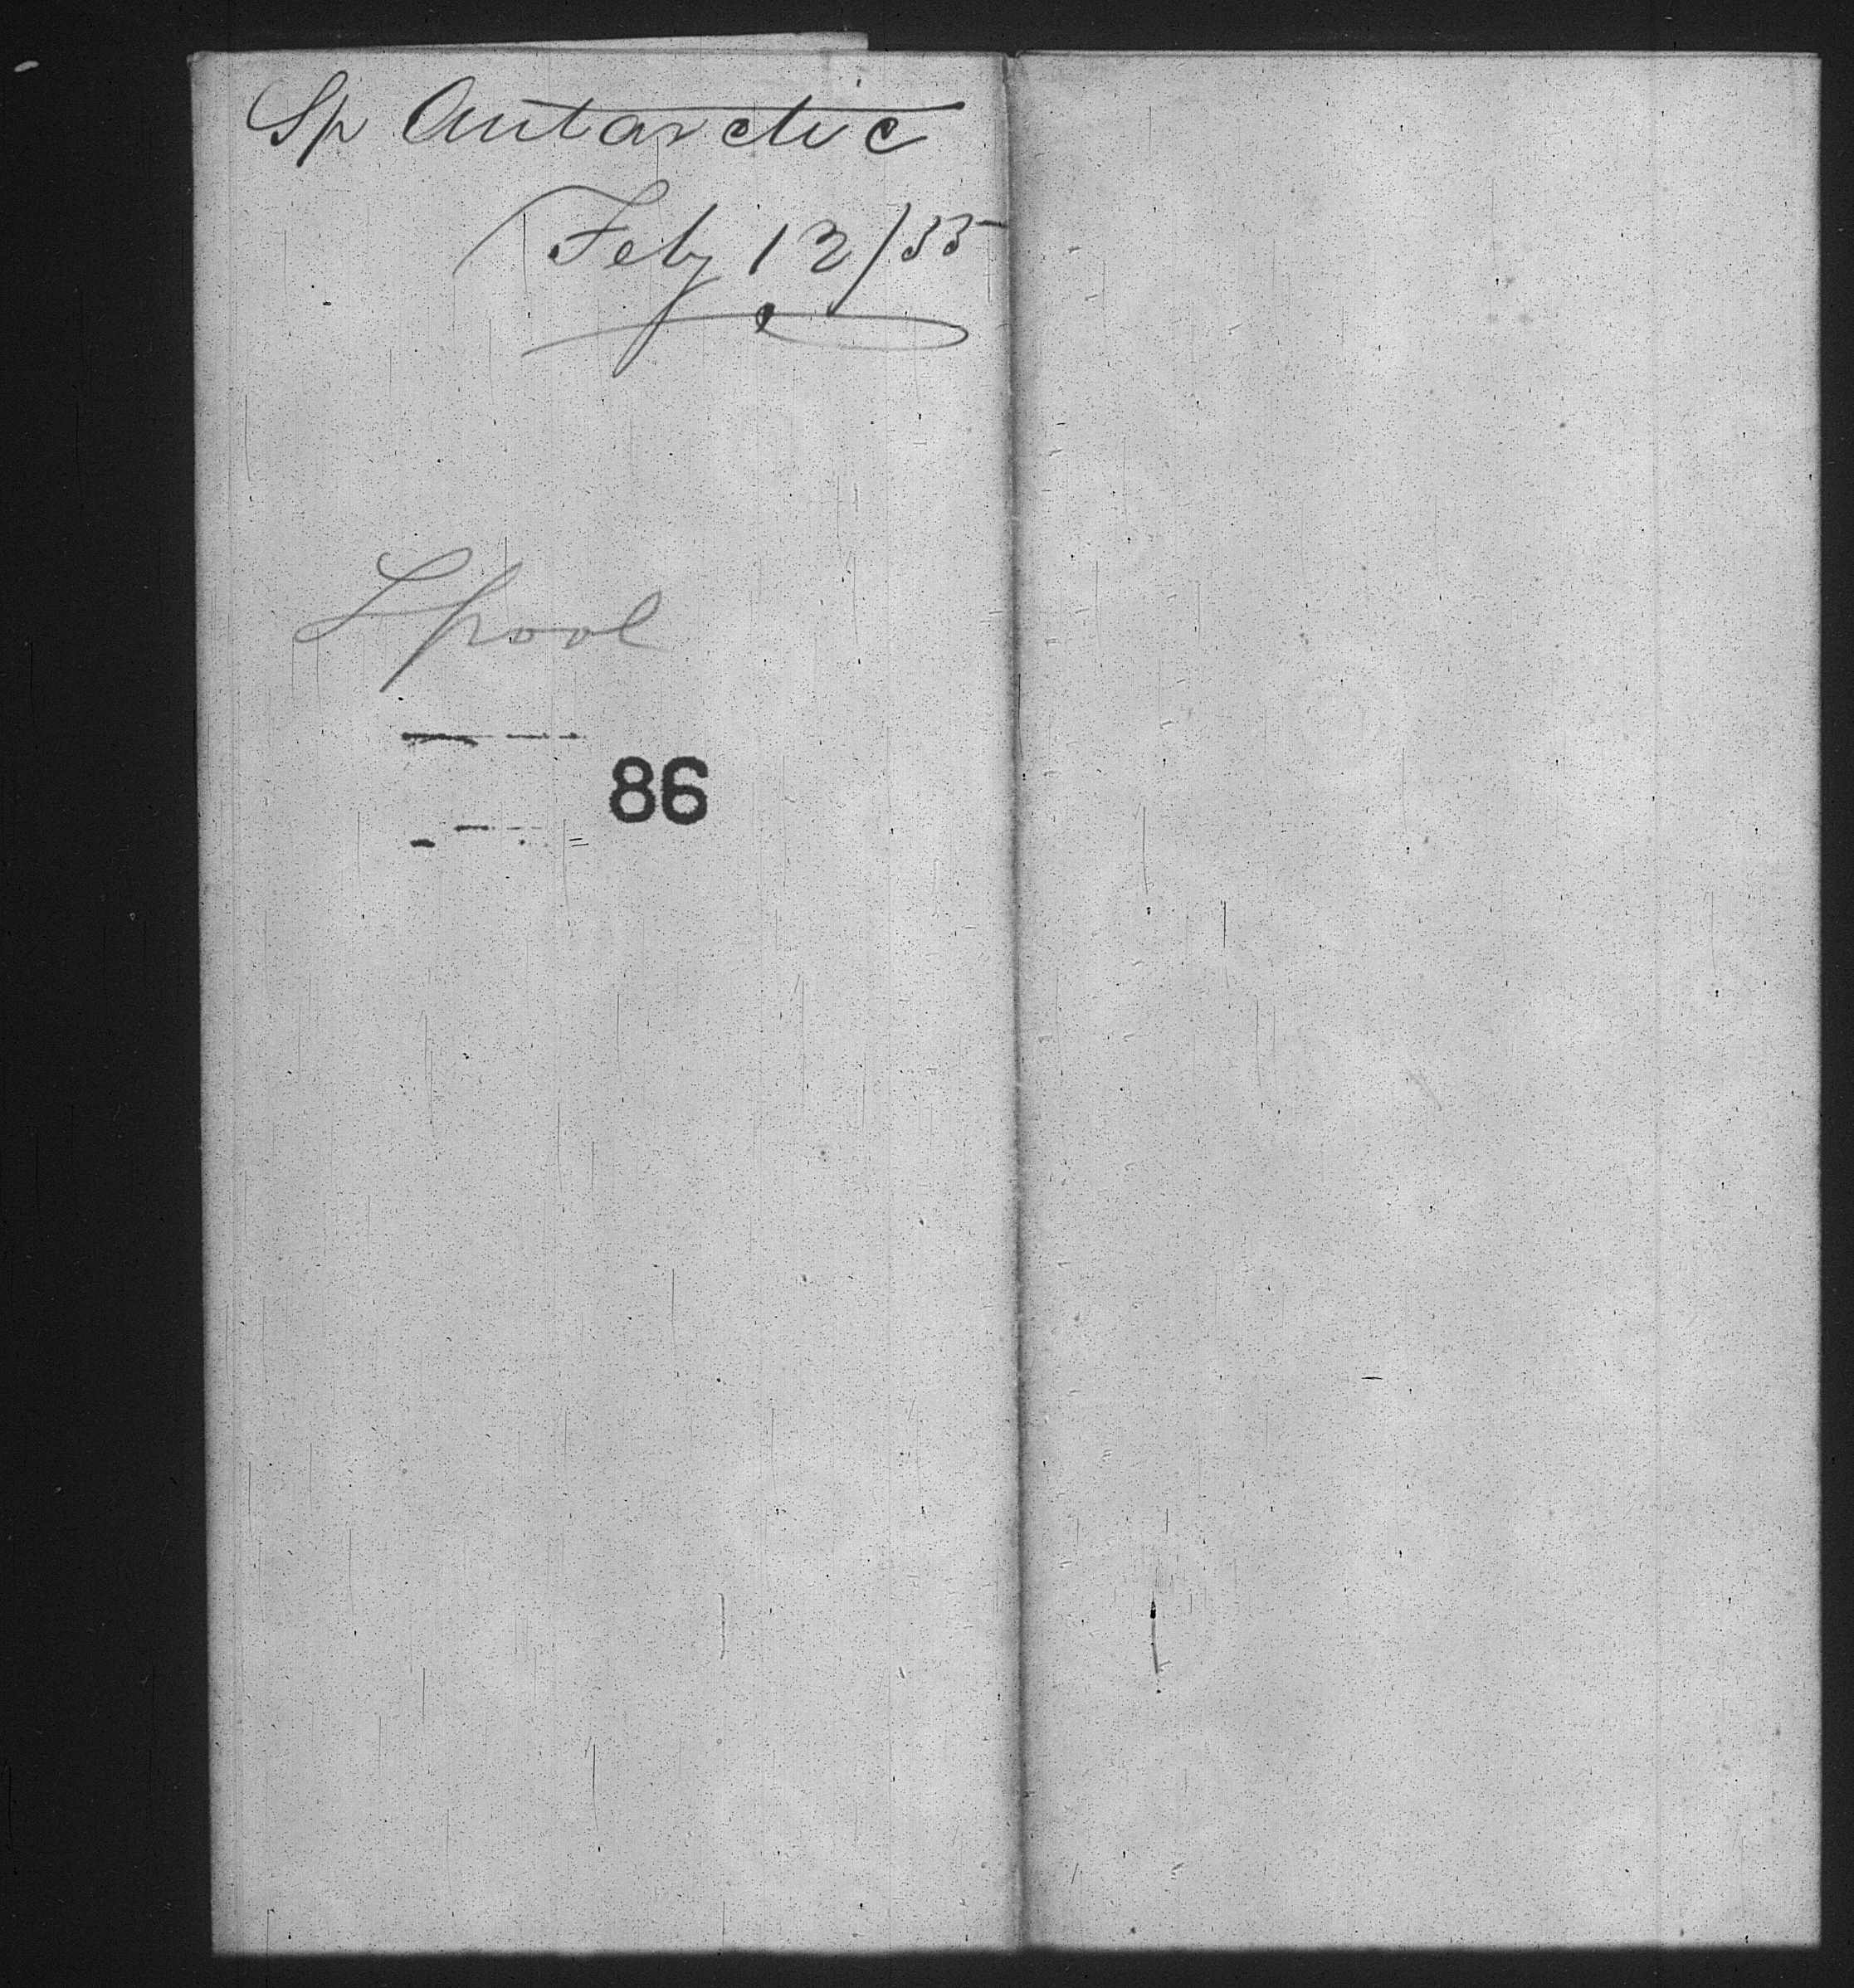 Sp Antarctic
Feby 12/55
Lpool
86